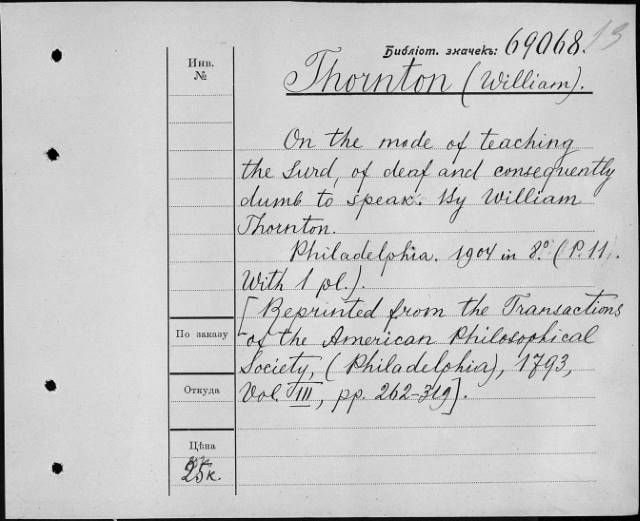 Библіот. значекъ: 69068. 13
Инв.
№
Thornton (William).
On the mode of teaching
the Surd, of deaf and consequently
dumb to speak. By William
Thornton.
Philadelphia. 1904 in 8° (P. 11.
With 1 pl.).
[Reprinted from the Transactions
По заказу
of the American Philosophical
Society, (Philadelphia), 1793,
Откуда
Vol. III, pp. 262-319].
Цѣна
25к.